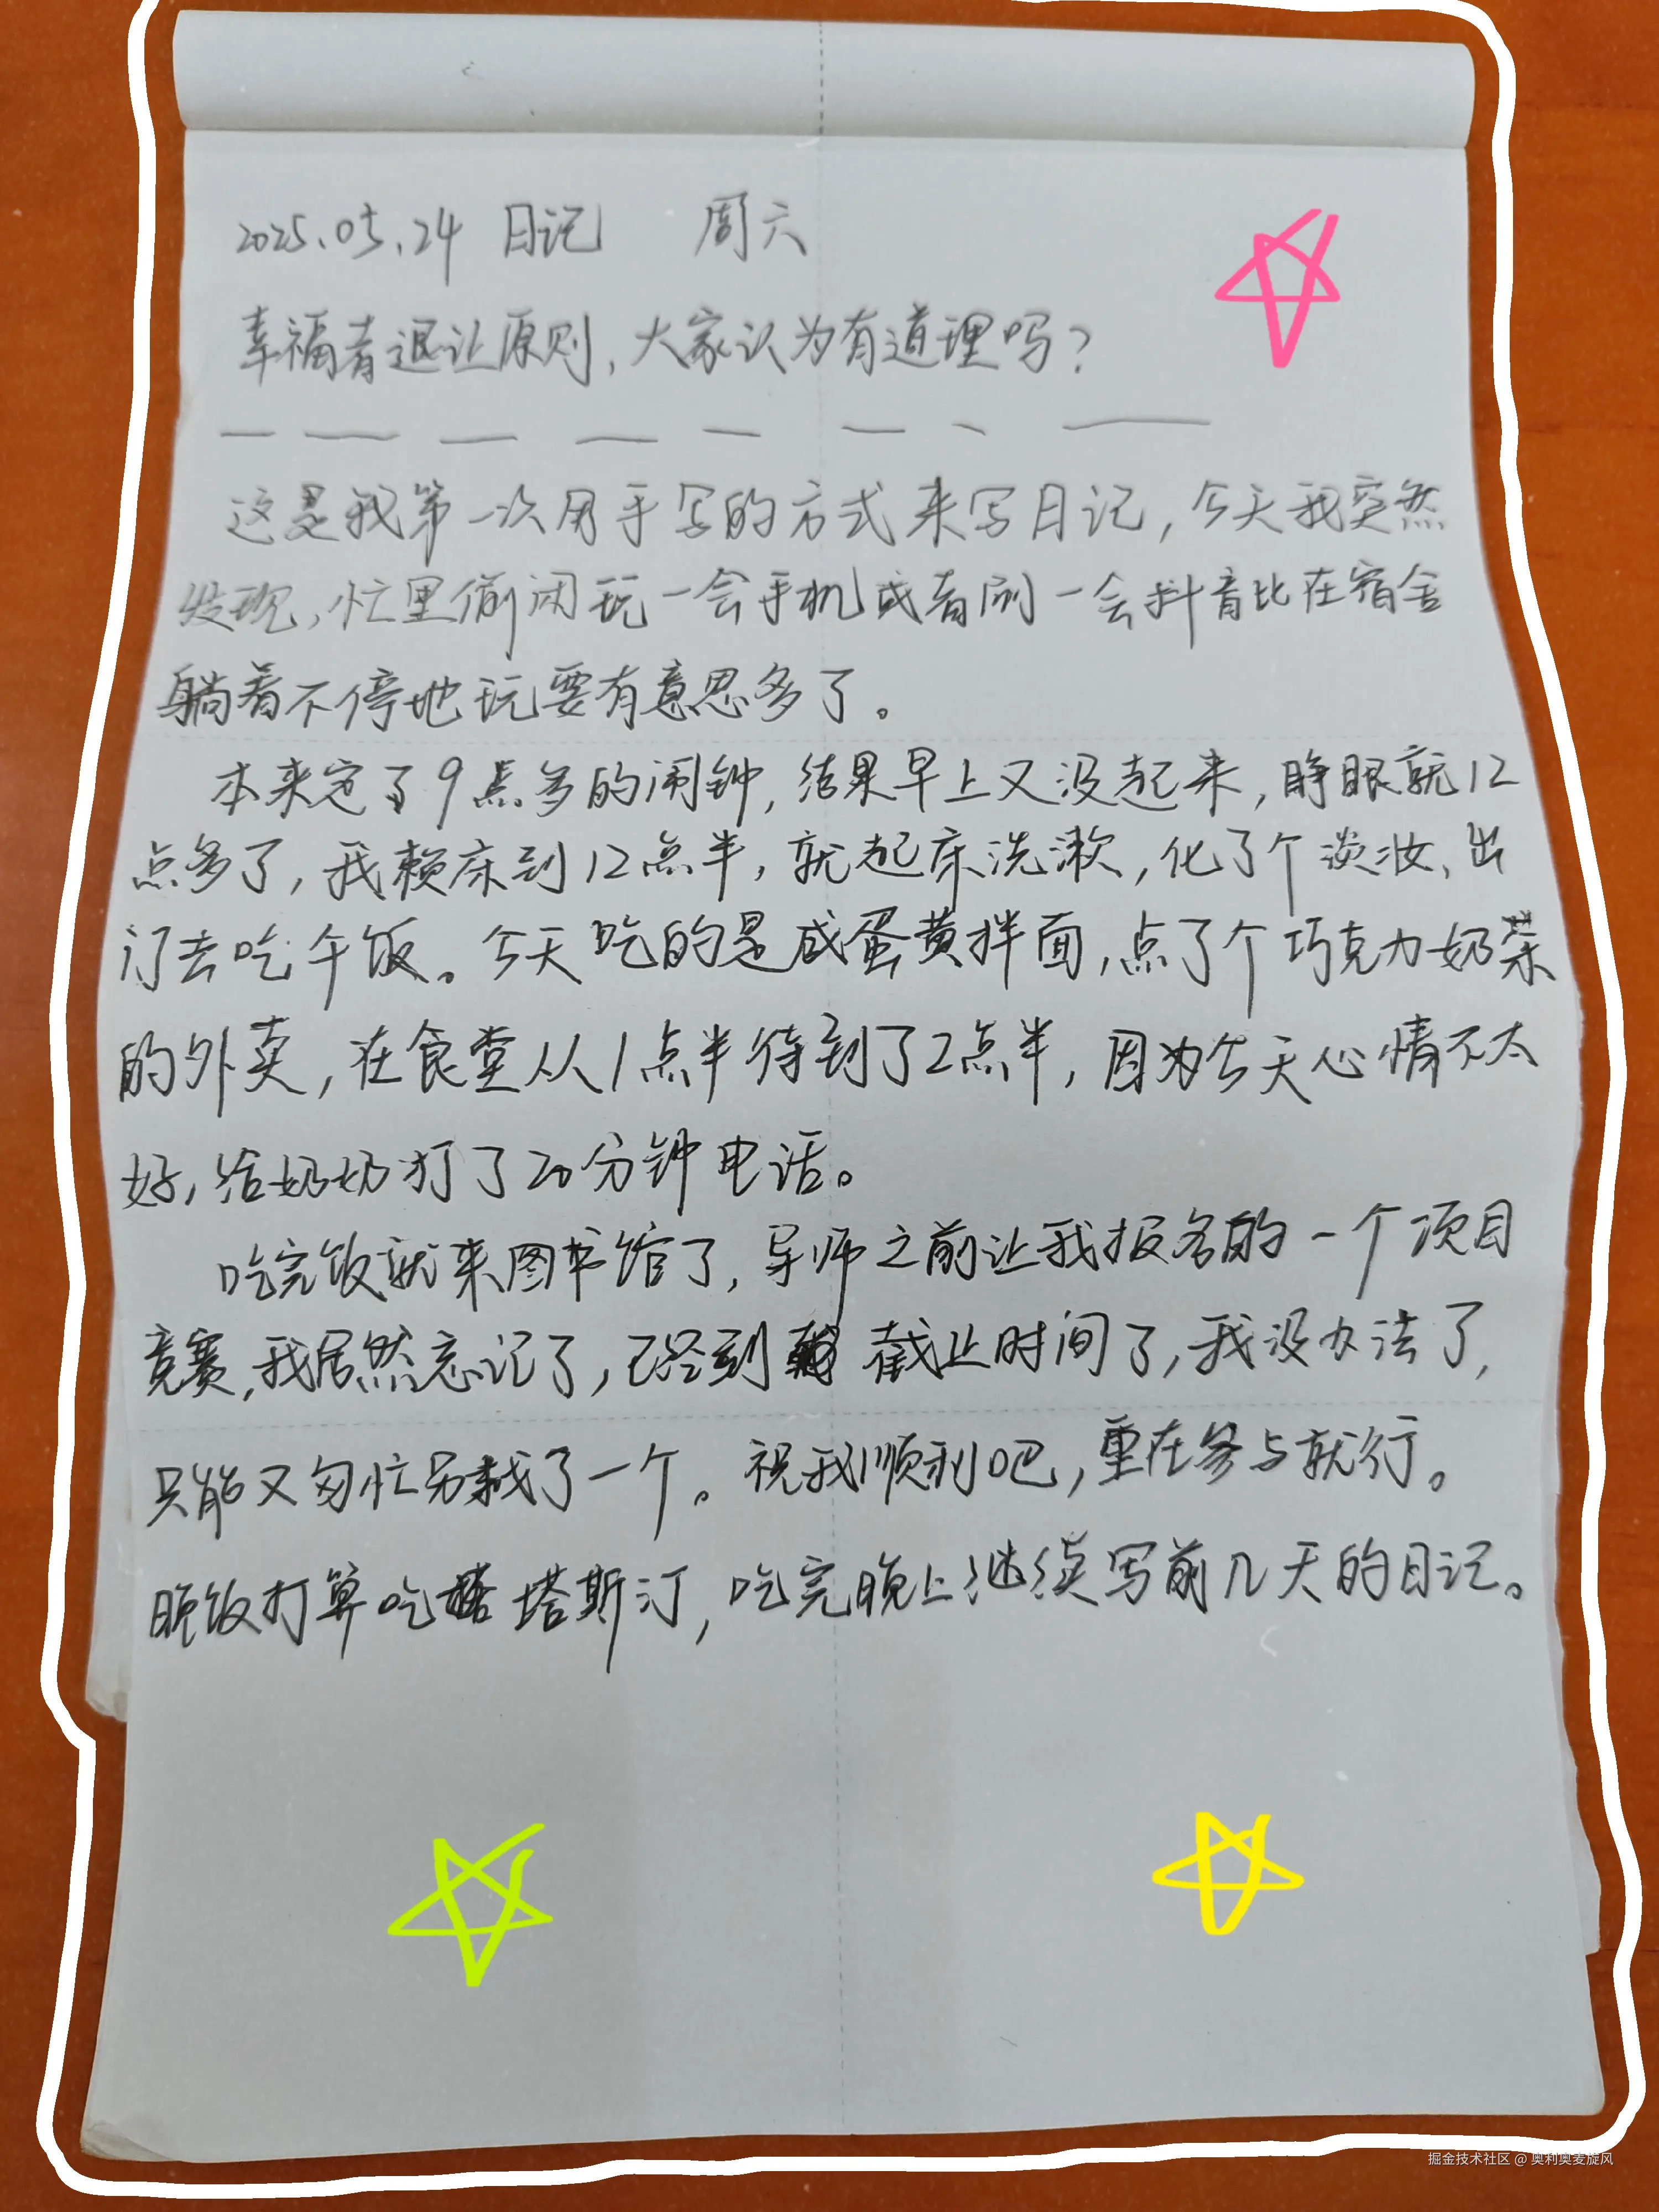 2025.05.24 日记 周六
幸福者退让原则,大家认为有道理吗?
这是我第一次用手写的方式来写日记,今天我突然
发现,忙里偷闲玩一会手机或者刷一会抖音比在宿舍
躺着不停地玩要有意思多了。
本来定了9点多的闹钟,结果早上又没起来,睁眼就12
点多了,我赖床到12点半,就起床洗漱,化了个淡妆、出
门去吃午饭。今天吃的是咸蛋黄拌面,点了个巧克力奶茶
的外卖,在食堂从1点半待到了2点半,因为今天心情不太
好,给奶奶打了20分钟电话。
吃完饭就来图书馆了,导师之前让我报名的一个项目
竞赛,我居然忘记了,已经到截止时间了,我没办法了,
只能又匆忙另找了一个。祝我顺利吧,重在参与就行。
晚饭打算吃塔斯汀,吃完晚上继续写前几天的日记。
掘金技术社区 @ 奥利奥麦旋风